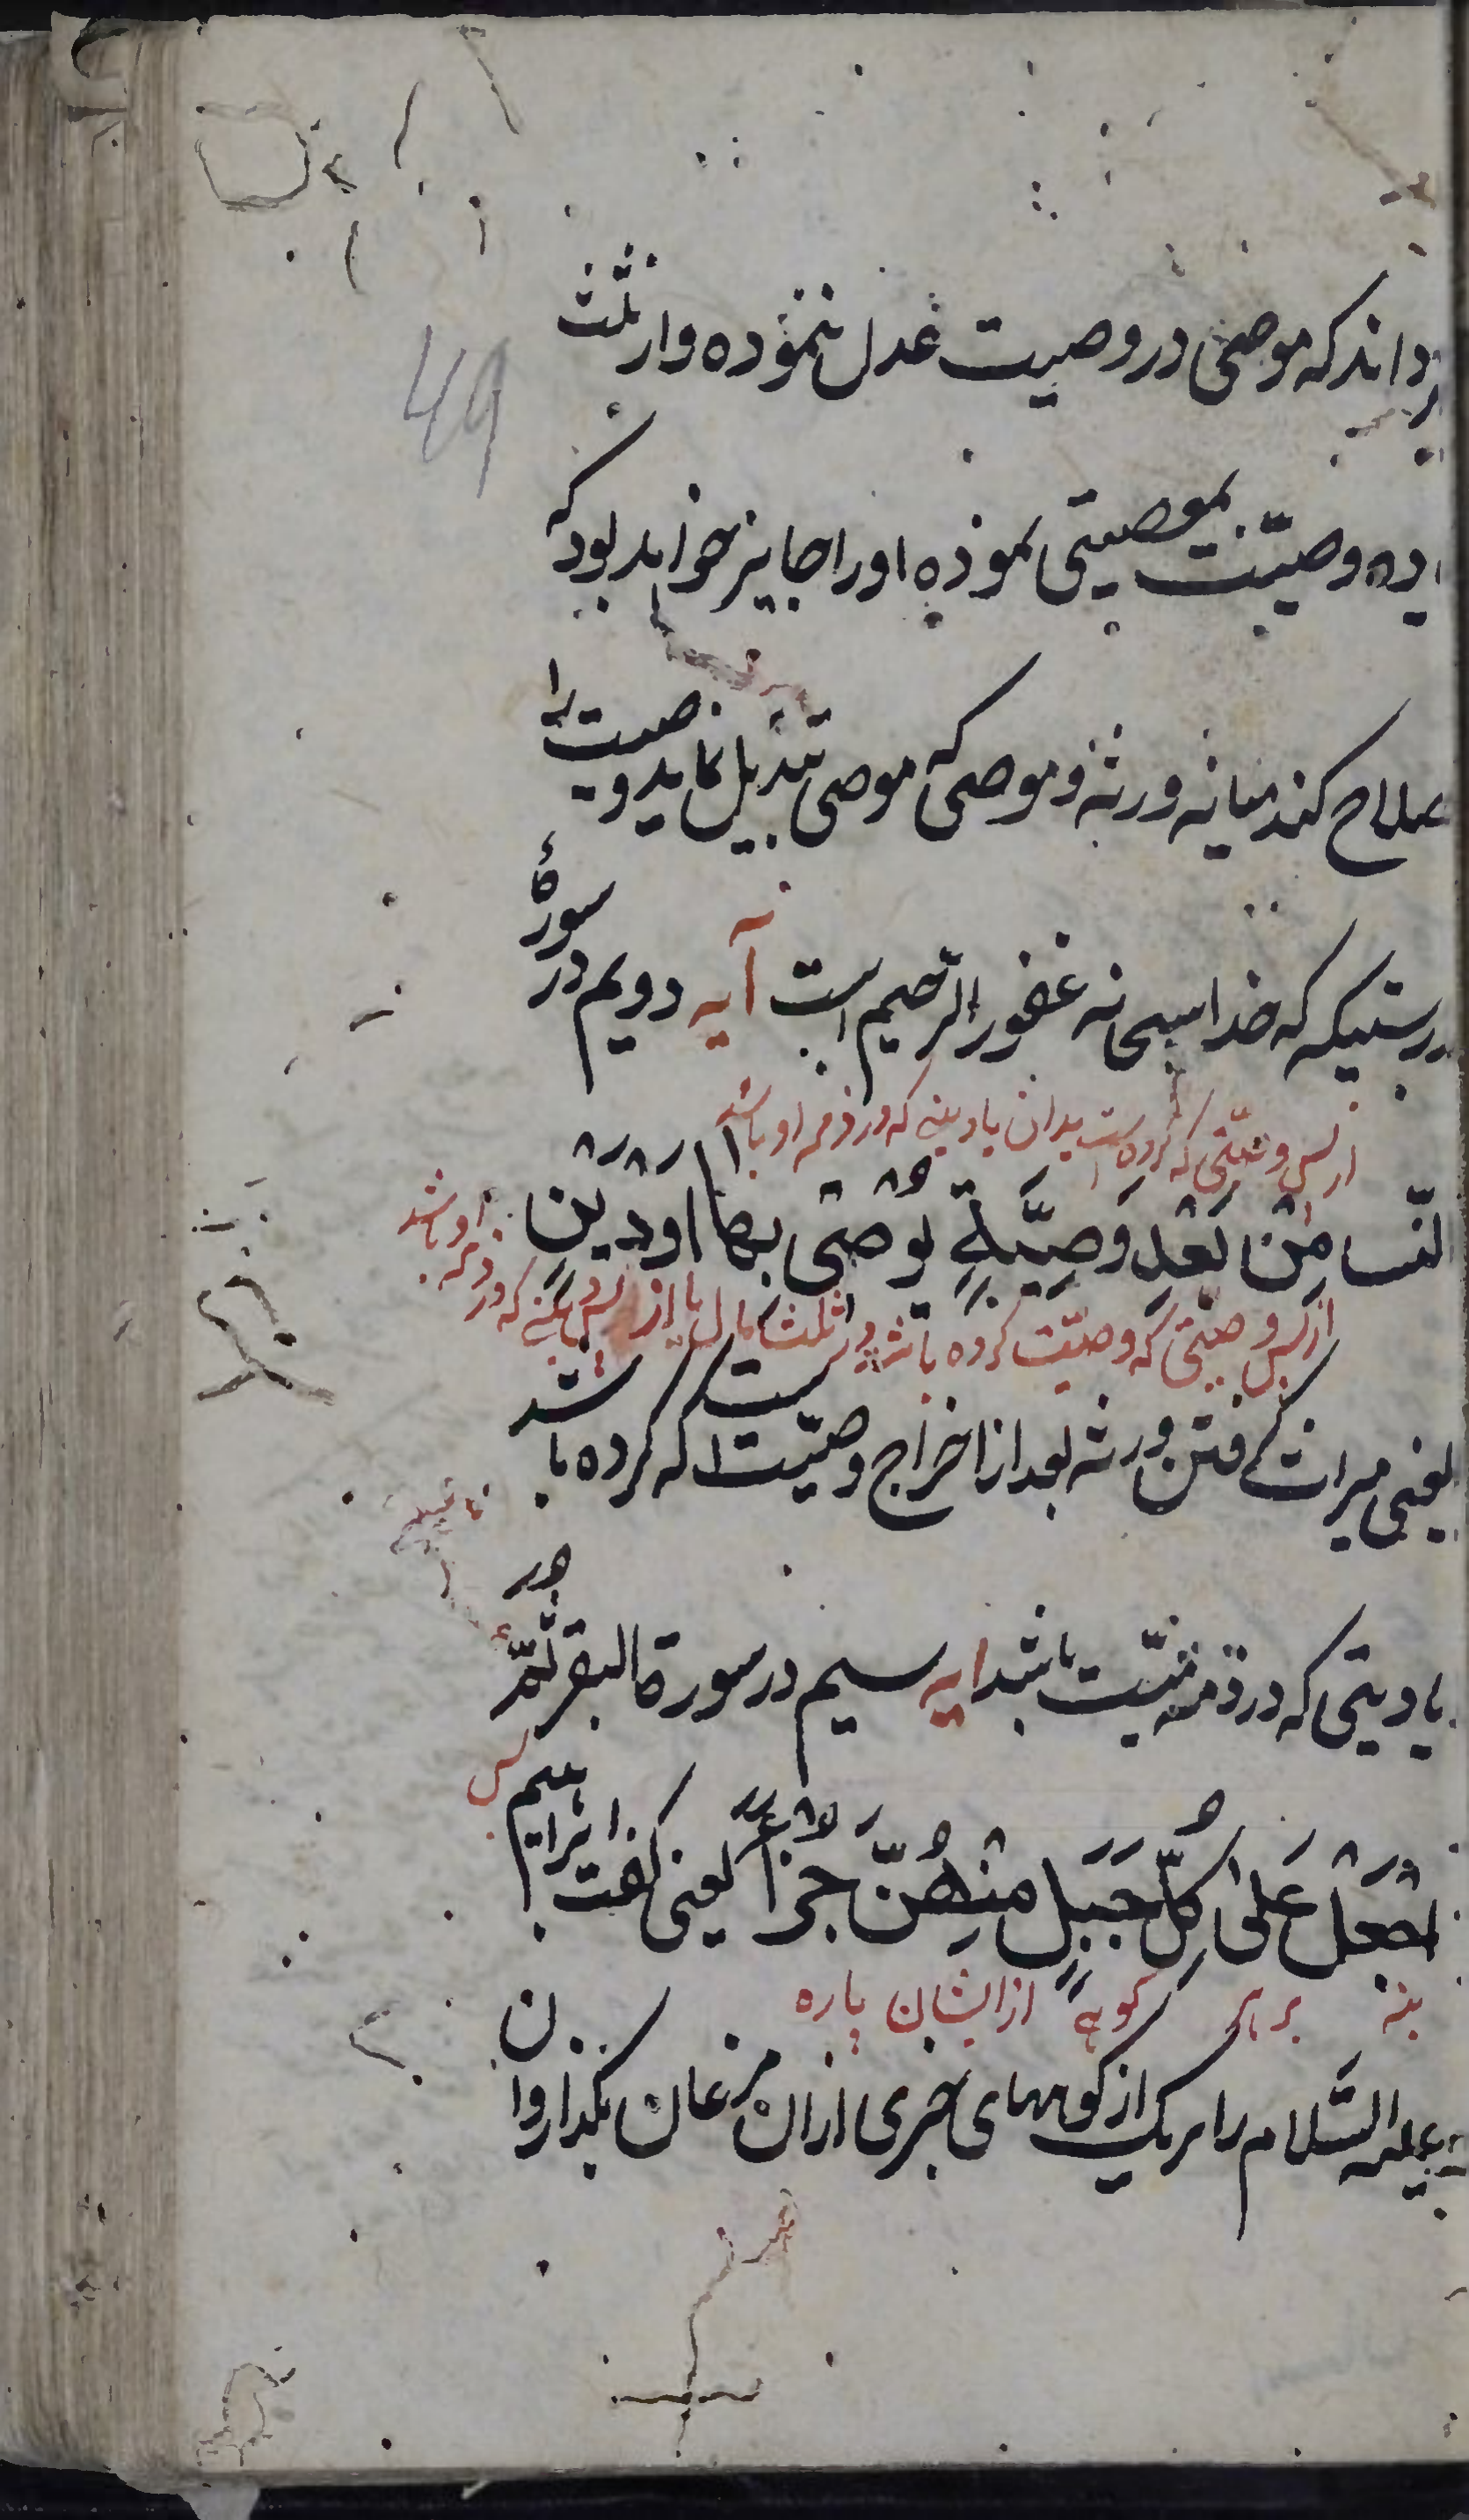 داند که موصی در وصیت عدل ننموده و از ثلث
49
وصیّت بمعصیتی نموده او را جایز خواهد بود که
صلاح کند میانه ورثه و موصی که موصی تبدیل نماید وصیت را
درستیکه که خدا سبحانه غفور الرّحیم است آیه دویم در سورهٔ
از پس وصیّتی که کرده است بدان یا دینی که در ذمه او باشد
النّسا مِنْ بَعْدِ وَصِیَّةٍ یُوْصٰی بِهَا اَوْ دَیْنٍ
از پس وصیّتی که وصیّت کرده باشد در ثلث مال یا از پس دینی که در ذمه او باشد
یعنی میراث گرفتن ورثه بعد از اخراج وصیّت است که کرده باشد
یا دینی که در ذمّه میّت باشد ایه سیم در سورة البقر ثُمَّ
اجْعَلْ عَلٰی کُلِّ جَبَلٍ مِنْهُنَّ جُزْاً یعنی گفت ابراهیم
بنه بر هر کوهی از ایشان پاره
علیه السّلام را بر یک از کوههای جزی از ان مرغان بگذار و ان